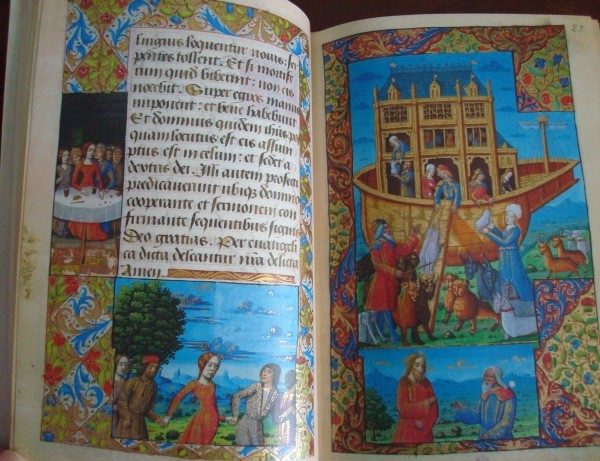 linguis loquentur nouis: ser
pentes tollent. Et si mortife
rum quid biberint: non eis
nocebit. Super egros manus
imponent: et bene habebunt
Et dominus quidem ihus post
quam locutus est eis assum
ptus est in celum: et sedet a
dextris dei. Illi autem profecti
predicauerunt ubiqz domino
cooperante et sermonem con
firmante sequentibus signis
Deo gratias. Per euangeli
ca dicta deleantur nra delicta
Amen.